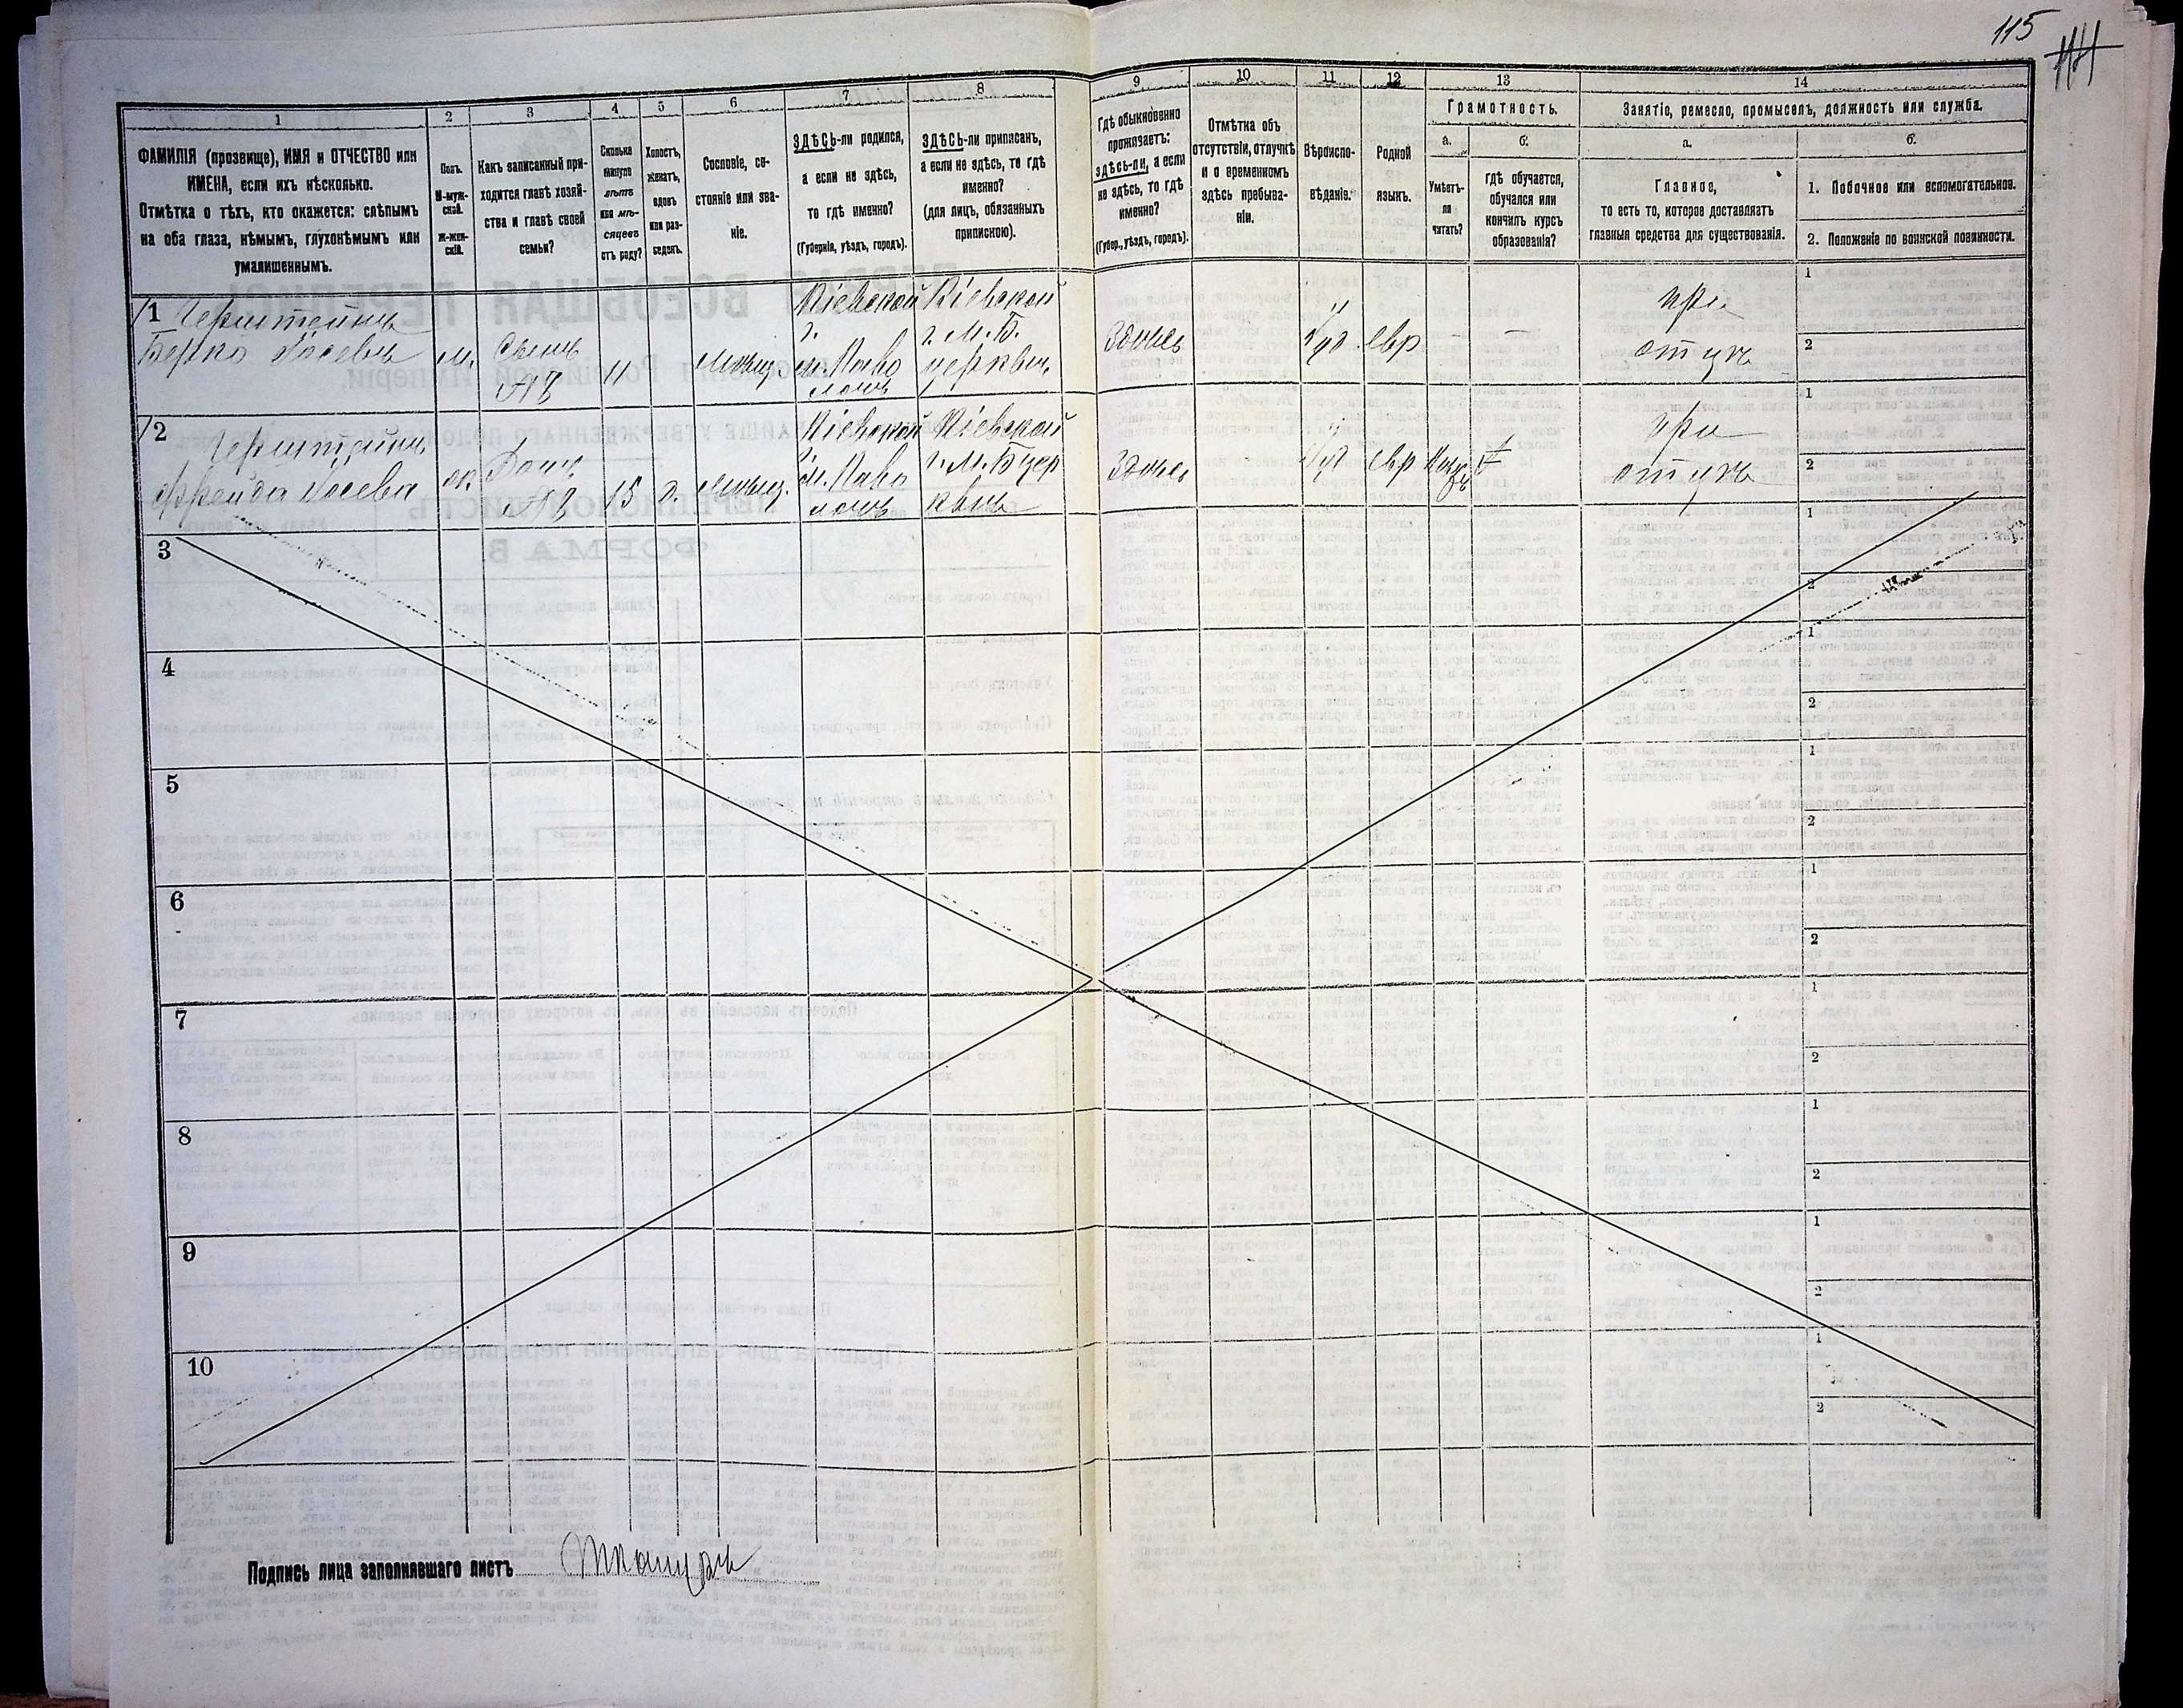 115
1
2
3
4
5
6
7
8
9
10
11
12
13
14
ФАМИЛІЯ (прозвище), ИМЯ и ОТЧЕСТВО или
ИМЕНА, если ихъ нѣсколько.
Отмѣтка о тѣхъ, кто окажется: слѣпымъ
на оба глаза, нѣмымъ, глухонѣмымъ или
умалишеннымъ.
Полъ.
М-муж-
ской.
Ж-жен-
скій.
Какъ записанный при-
ходится главѣ хозяй-
ства и главѣ своей
семьи?
Сколько
минуло
лѣтъ
или мѣ-
сяцевъ
отъ роду?
Холостъ,
женатъ,
вдовъ
или раз-
веденъ.
Сословіе, со-
стояніе или зва-
ніе.
ЗДѢСЬ-ли родился,
а если не здѣсь,
то гдѣ именно?
(Губернія, уѣздъ, городъ).
ЗДѢСЬ-ли приписанъ,
а если не здѣсь, то гдѣ
именно?
(для лицъ, обязанныхъ
припискою).
Гдѣ обыкновенно
проживаетъ:
здѣсь-ли, а если
не здѣсь, то гдѣ
именно?
(Губер., уѣздъ, городъ).
Отмѣтка объ
отсутствіи, отлучкѣ
и о временномъ
здѣсь пребыва-
ніи.
Вѣроиспо-
вѣданіе.
Родной
языкъ.
Грамотность.
а.
Умѣетъ-
ли
читать?
б.
гдѣ обучается,
обучался или
кончилъ курсъ
образованія?
Занятіе, ремесло, промыселъ, должность или служба.
а.
Главное,
то есть то, которое доставляетъ
главныя средства для существованія.
б.
1. Побочное или вспомогательное.
2. Положеніе по воинской повинности.
1
Берко
м.
Сынъ
11
Мѣщ.
Кіевской
г.
Кіевской
г. М. Б.
церквы
Здѣсь
Іуд
евр
—
—
при
отцѣ
1
2
2
Фрейда
ж
Дочь
15
д.
Мѣщ.
Кіевской
Кіевской
г. М. Бцер
квы
Здѣсь
Іуд
евр
при
отцѣ
1
2
3
1
2
4
1
2
5
1
2
6
1
2
7
1
2
8
1
2
9
1
2
10
1
2
Подпись лица заполнявшаго листъ